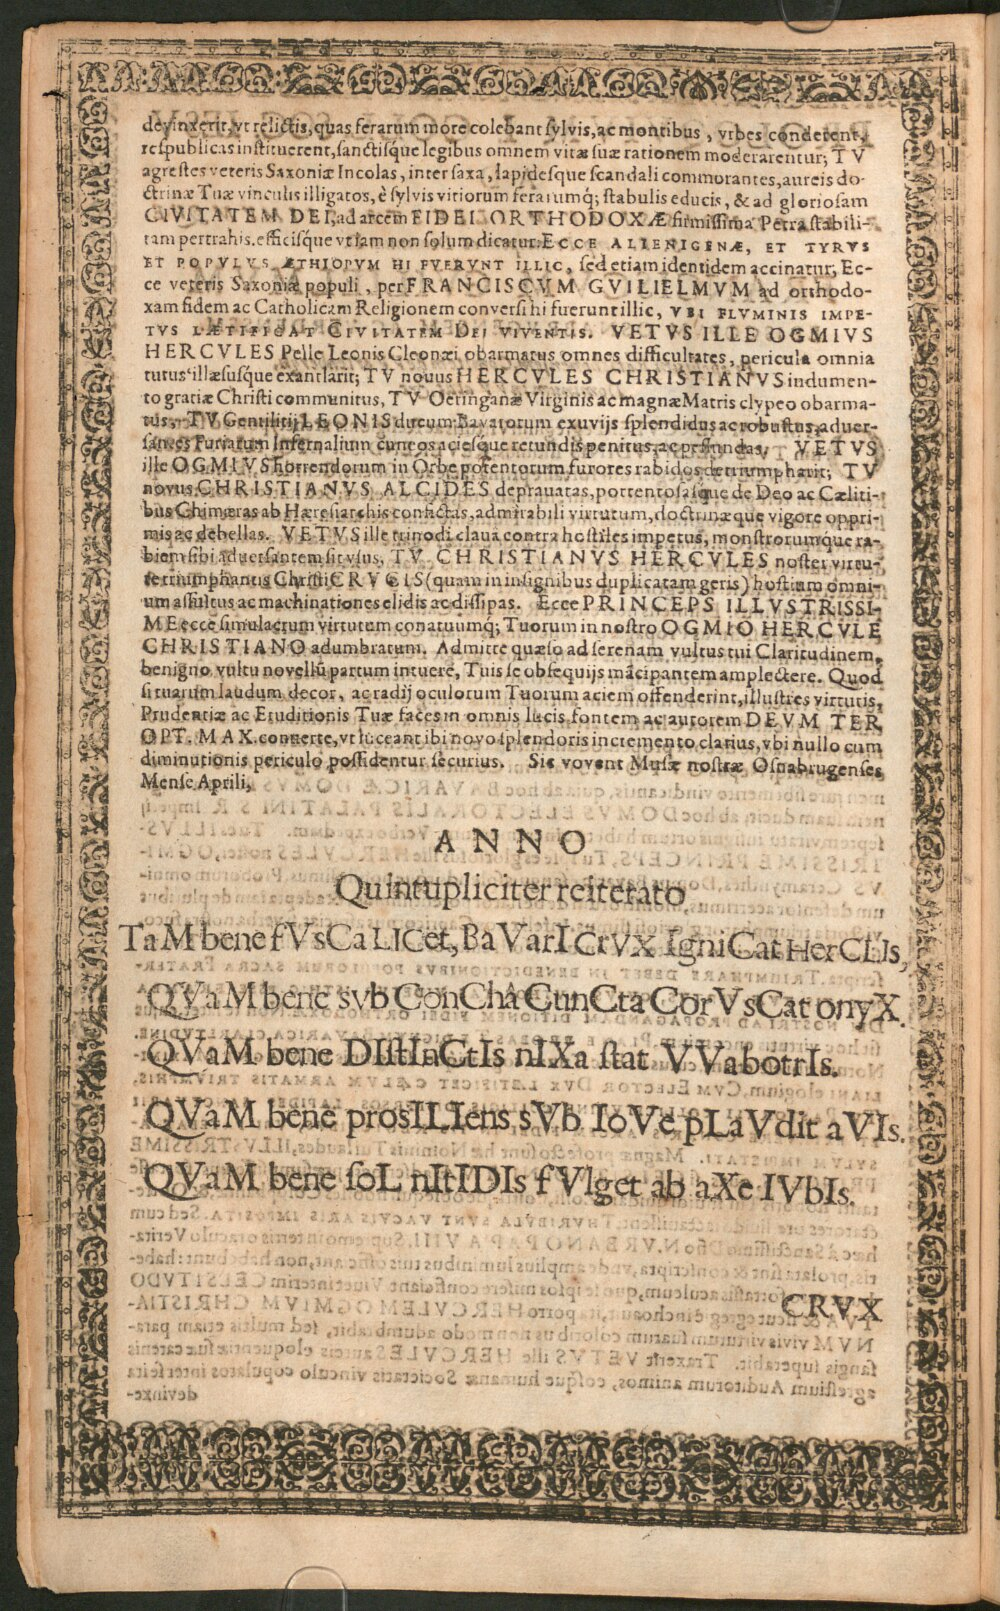 devinxerit, vt relictis, quas ferarum more colebant sylvis, ac montibus, vrbes conderent,
respublicas instituerent, sanctisque legibus omnem vitæ suæ rationem moderarentur; TV
agrestes veteris Saxoniæ Incolas, inter saxa, lapidesque scandali commorantes, aureis do-
ctrinæ Tuæ vinculis illigatos, è sylvis vitiorum ferarumq; stabulis educis, & ad gloriosam
CIVITATEM DEI, ad arcem FIDEI ORTHODOXÆ firmissima Petra stabili-
tam pertrahis, efficisque vt iam non solum dicatur: ECCE ALIENIGENÆ, ET TYRVS
ET POPVLVS ÆTHIOPVM HI FVERVNT ILLIC, sed etiam identidem accinatur; Ec-
ce veteris Saxoniæ populi, per FRANCISCVM GVILIELMVM ad orthodo-
xam fidem ac Catholicam Religionem conversi hi fuerunt illic, VBI FLVMINIS IMPE-
TVS LÆTIFICAT CIVITATEM DEI VIVENTIS. VETVS ILLE OGMIVS
HERCVLES Pelle Leonis Cleonæi obarmatus omnes difficultates, pericula omnia
tutus illæsusque exantlarit; TV novus HERCVLES CHRISTIANVS indumen-
to gratiæ Christi communitus, TV Oetinganæ Virginis ac magnæ Matris clypeo obarma-
tus, TV Gentilitij LEONIS ducum Bavarorum exuvijs splendidus ac robustus, adver-
santes Furiarum Infernalium cuneos aciesque retundis penitus, ac profundas. VETVS
ille OGMIVS horrendorum in Orbe potentorum furores rabidos detriumpharit; TV
novus CHRISTIANVS ALCIDES depravatas, portentosasque de Deo ac Cæliti-
bus Chimæras ab Hæresiarchis confictas, admirabili virtutum, doctrinæque vigore oppri-
mis ac debellas. VETVS ille trinodi clava contra hostiles impetus, monstrorumque ra-
biem sibi adversantem sit vsus, TV CHRISTIANVS HERCVLES noster virtu-
te triumphantis Christi CRVCIS (quam in insignibus duplicatam geris) hostium omni-
um assultus ac machinationes elidis ac dissipas. Ecce PRINCEPS ILLVSTRISSI-
ME ecce simulacrum virtutum conatuumq; Tuorum in nostro OGMIO HERCVLE
CHRISTIANO adumbratum. Admitte quæso ad serenam vultus tui Claritudinem,
benigno vultu novellū partum intuere, Tuis se obsequijs mācipantem amplectere. Quod
si tuarum laudum decor, ac radij oculorum Tuorum aciem offenderint, illustres virtutis,
Prudentiæ ac Eruditionis Tuæ faces in omnis lucis fontem ac autorem DEVM TER
OPT. MAX. converte, vt luceant ibi novo splendoris incremento clarius, vbi nullo cum
diminutionis periculo possidentur securius. Sic vovent Musæ nostræ Osnabrugenses
Mense Aprili,
ANNO
Quintupliciter reiterato
TaM bene fVsCa LICet, BaVarI CrVX IgniCat HerCLIs,
QVaM bene svb ConCha CunCta CorVsCat onyX.
QVaM bene DIstInCtIs nIXa stat VVabotrIs.
QVaM bene prosILIens sVb IoVe pLaVdit aVIs.
QVaM bene soL nItIDIs fVlget ab aXe IVbIs.
CRVX